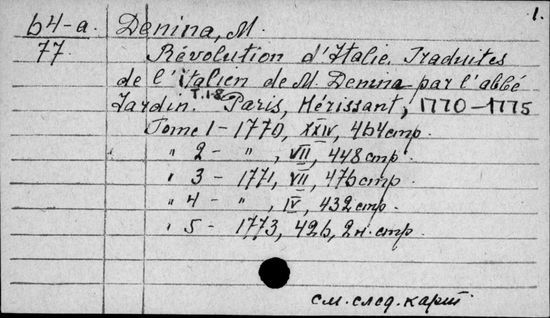 1.
64-a
77
Denina, M.
Révolution d'Italie. Traduites
de l'italien de M. Denina par l'abbé
Jardin. T.1-8 Paris, Hérissant, 1770-1775
Tome 1 - 1770, XXIV, 464 стр.
" 2 - " , VII, 448 стр.
" 3 - 1771, VII, 476 стр.
" 4 - " , IV, 432 стр.
" 5 - 1773, 426, 2 н. стр.
см. след. карт